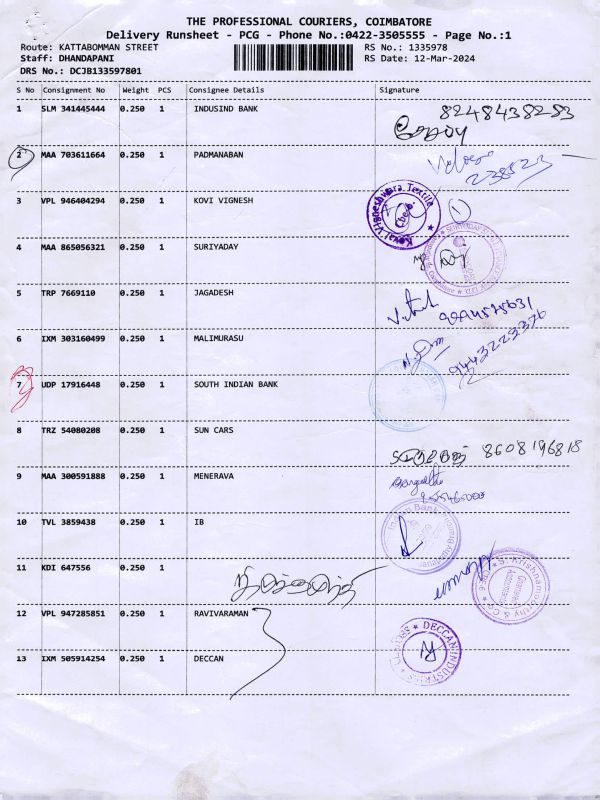 THE PROFESSIONAL COURIERS, COIMBATORE
Delivery Runsheet - PCG - Phone No.:0422-3505555 - Page No.:1
Route: KATTABOMMAN STREET RS No.: 1335978
Staff: DHANDAPANI RS Date: 12-Mar-2024
DRS No.: DCJB133597801
S No Consignment No Weight PCS Consignee Details Signature
1 SLM 341445444 0.250 1 INDUSIND BANK 8248438283
2 MAA 703611664 0.250 1 PADMANABAN
238523
3 VPL 946404294 0.250 1 KOVI VIGNESH Kovai Vigneshwara Textile 1
4 MAA 865056321 0.250 1 SURIYADAY
5 TRP 7669110 0.250 1 JAGADESH
6 IXM 303160499 0.250 1 MALIMURASU 9443223376
7 UDP 17916448 0.250 1 SOUTH INDIAN BANK
8 TRZ 54080208 0.250 1 SUN CARS 8608196818
9 MAA 300591888 0.250 1 MENERAVA
10 TVL 3859438 0.250 1 IB Indian Bank
11 KDI 647556 0.250 1 S. Krishnamoorthy & Co
12 VPL 947285851 0.250 1 RAVIVARAMAN
13 IXM 505914254 0.250 1 DECCAN DECCAN INDUSTRIES